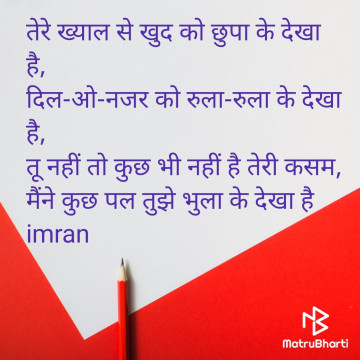 तेरे ख्याल से खुद को छुपा के देखा
है,
दिल-ओ-नजर को रुला-रुला के देखा
है,
तू नहीं तो कुछ भी नहीं है तेरी कसम,
मैंने कुछ पल तुझे भुला के देखा है
imran
MatruBharti